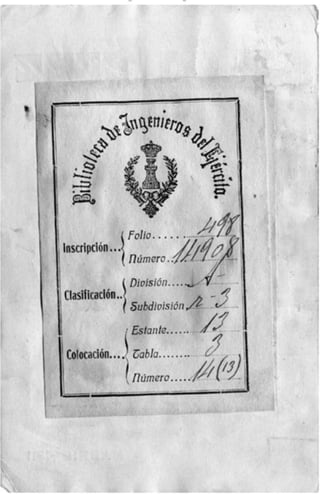 Biblioteca de Ingenieros del Ejército.
Inscripción... Folio...... 498
Número.. 11.908
Clasificación.. División..... A-
Subdivisión n-3
Colocación.... Estante.... 13
Tabla........ 3
Número..... 14 (13)